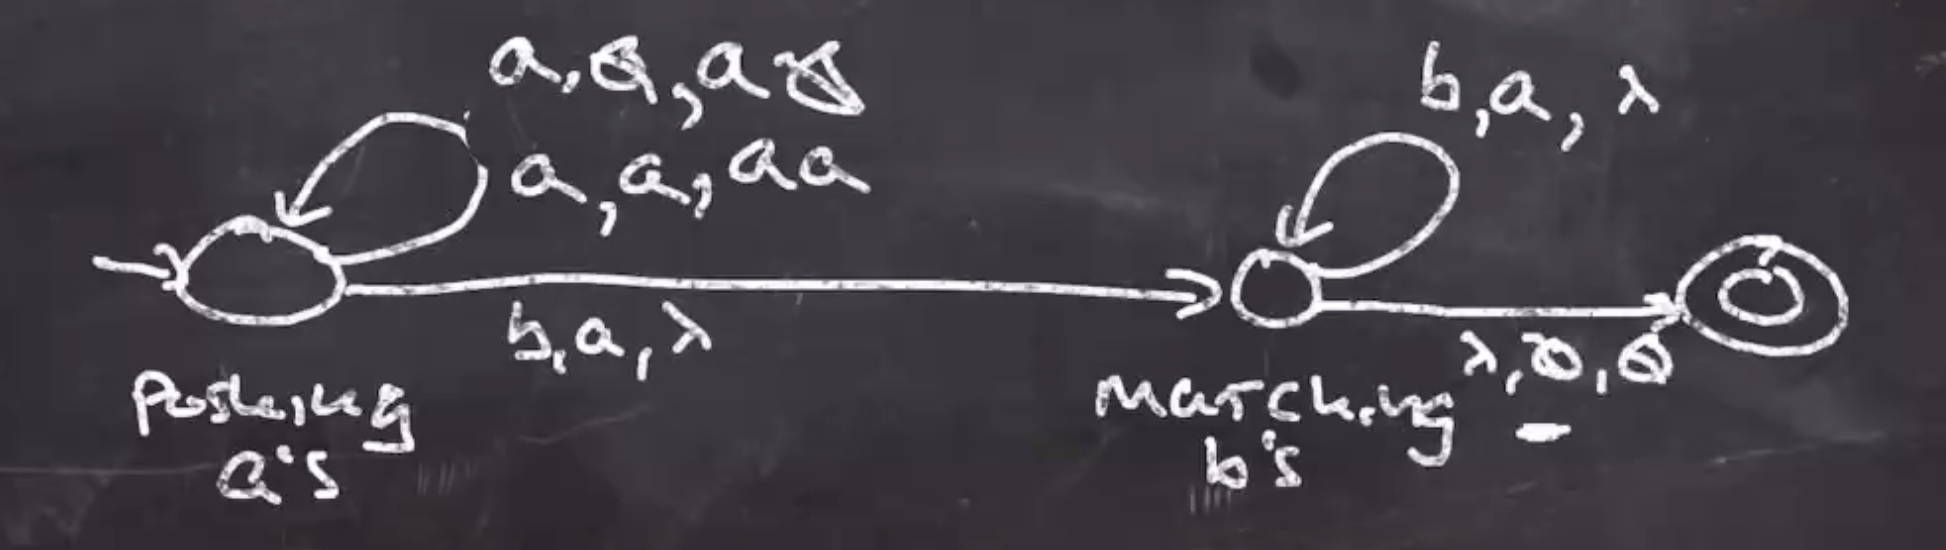 a, ∅, a∅
a, a, aa
b, a, λ
b, a, λ
λ, ∅, ∅
Pushing
a's
matching
b's